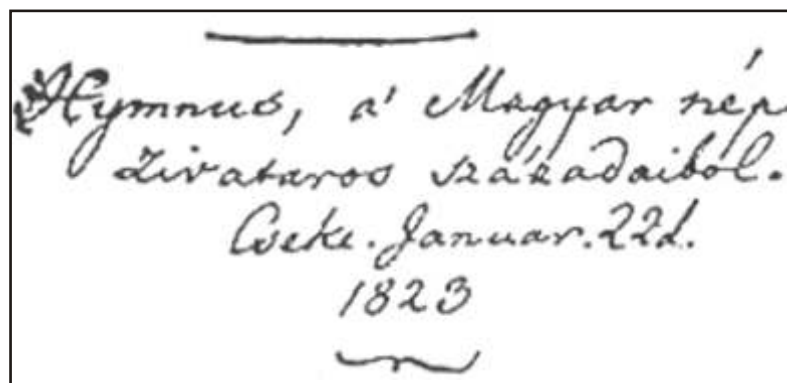 Hymnus, a' Magyar nép
Zivataros századaiból.
Cseke. Januar. 22d.
1823